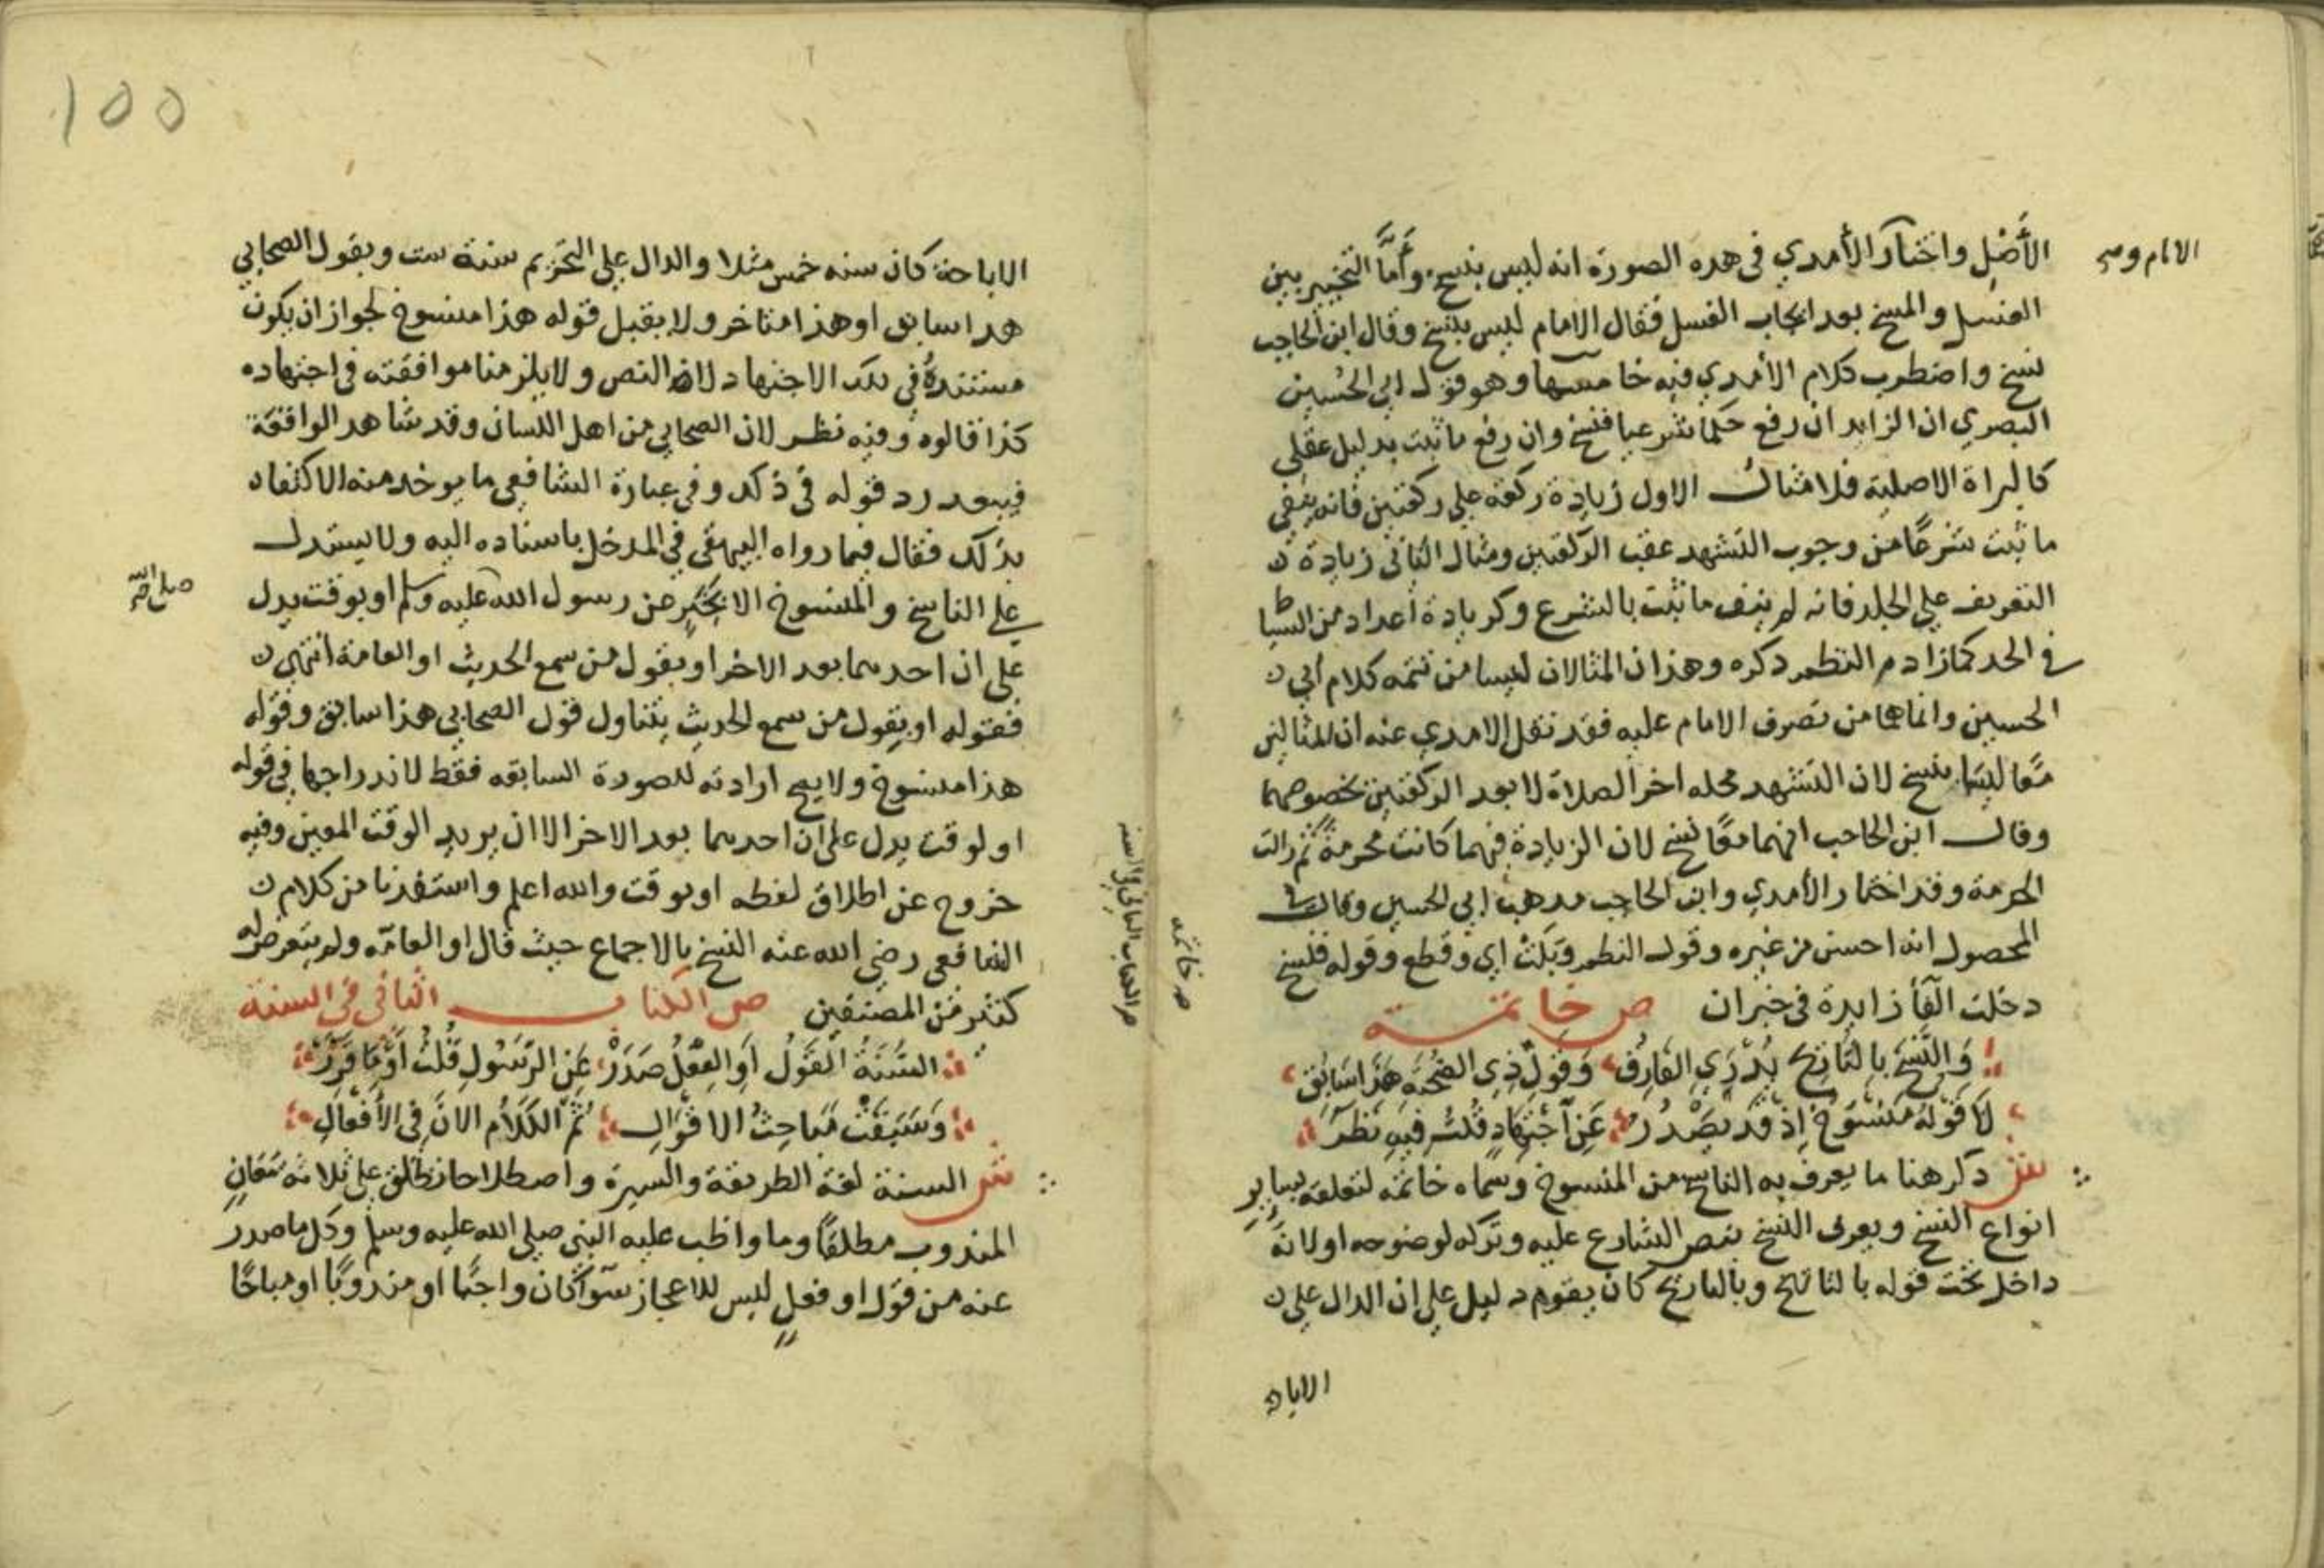 الأصل واختار الأمدي في هذه الصورة انه ليس بنسخ وأما التخيير بين
الغسل والمسح بعد ايجاب الغسل فقال الامام ليس بنسخ وقال ابن الحاجب
نسخ واضطرب كلام الأمدي فيه خامسها وهو قول ابي الحسين
البصري ان الزايد ان رفع حكما شرعيا فنسخ وان رفع ما ثبت بدليل عقلي
كالبراة الاصلية فلا مثال الاول زيادة ركعة علي ركعتين فانه ينفي
ما ثبت شرعا من وجوب التشهد عقب الركعتين ومثال الثاني زيادة
التغريب علي الجلد فانه لم ينف ما ثبت بالشرع وكزيادة اعداد من السياط
في الحد كما زادم النظم ذكره وهذان المثالان ليسا من تتمه كلام ابي
الحسين وانما هما من تصرف الامام عليه فقد نقل الامدي عنه ان المثالين
معا ليسا بنسخ لان التشهد محله اخر الصلاة لا بعد الركعتين بخصوصهما
وقال ابن الحاجب انهما معا نسخ لان الزيادة فيهما كانت محرمة ثم زالت
الحرمة وقد اختار الأمدي وابن الحاجب مذهب ابي الحسين وقال في
المحصول انه احسن من غيره وقول النظم وبَلَتْ اي وقطع وقوله فنسخ
دخلت الفا زايدة في خبر ان ص خاتمـــة
وَالنَّسْخَ بالتاريخ يُدْرِي العَارِفُ وَقَوْلُ ذِي الصُّحْبَةِ هَذَا سَابِقُ
لَا قَوْلُهُ مَنْسُوخٌ اِذْ قَد يَصْدُرُ عَنِ اجْتِهَادٍ قُلْتُ فِيهِ نَظَرُ
ش ذكر هنا ما يعرف به الناسخ من المنسوخ وسماه خاتمه لتعلقه بساير
انواع النسخ ويعرف النسخ بنص الشارع عليه وتركه لوضوحه اولانه
داخل تحت قوله بالتاريخ وبالتاريخ كان يقوم دليل علي ان الدال علي
الاباحه
ص خاتمه
الاباحة كان سنه خمس مثلا والدال علي التحريم سنة ست وبقول الصحابي
هذا سابق او هذا متاخر ولا يقبل قوله هذا منسوخ لجواز ان يكون
مستنده في ذلك الاجتهاد لا النص ولا يلزمنا موافقته في اجتهاده
كذا قالوه وفيه نظر لان الصحابي من اهل اللسان وقد شاهد الواقعة
فيبعد رد قوله في ذلك وفي عبارة الشافعي ما يوخذ منه الاكتفاء
بذلك فقال فيما رواه البيهقي في المدخل باسناده اليه ولا يستدل
علي الناسخ والمنسوخ الا بخبر عن رسول الله عليه وسلم او بوقت يدل
علي ان احدهما بعد الاخر او بقول من سمع الحديث او العامة انتهي
فقوله او بقول من سمع الحديث يتناول قول الصحابي هذا سابق وقوله
هذا منسوخ ولا يصح ارادته للصورة السابقه فقط لاندراجها في قوله
او بوقت يدل علي ان احدهما بعد الاخر الا ان يريد الوقت المعين وفيه
خروج عن اطلاق لفظه او بوقت والله اعلم واستفدنا من كلام
الشافعي رضي الله عنه النسخ بالاجماع حيث قال او العامه ولم يتعرض له
كثير من المصنفين ص الكتاب الثاني في السنة
السُّنَّةُ القَوْلُ أَوِ الفِعْلُ صَدَرْ عَنِ الرَّسُولِ قُلْتُ أَوْ مَا قَرَّرْ
وَسَبَقَتْ مَبَاحِثُ الاقْوَالِ ثُمَّ الكَلَامُ الآنَ فِي الأَفْعَالِ
ش السنة لغة الطريقة والسيرة واصطلاحا تطلق علي ثلاثة معانٍ
المندوب مطلقا وما واظب عليه النبي صلي الله عليه وسلم وكل ما صدر
عنه من قول او فعل ليس للاعجاز سوا كان واجبا او مندوبا او مباحا
100